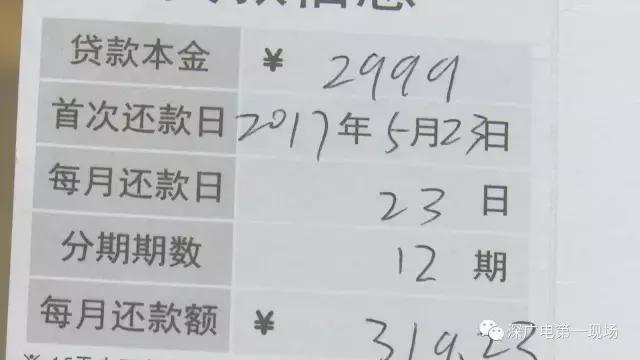 贷款本金 ¥ 2999
首次还款日 2017年5月23日
每月还款日 23日
分期期数 12期
每月还款额 ¥ 319.23
深广电第一现场